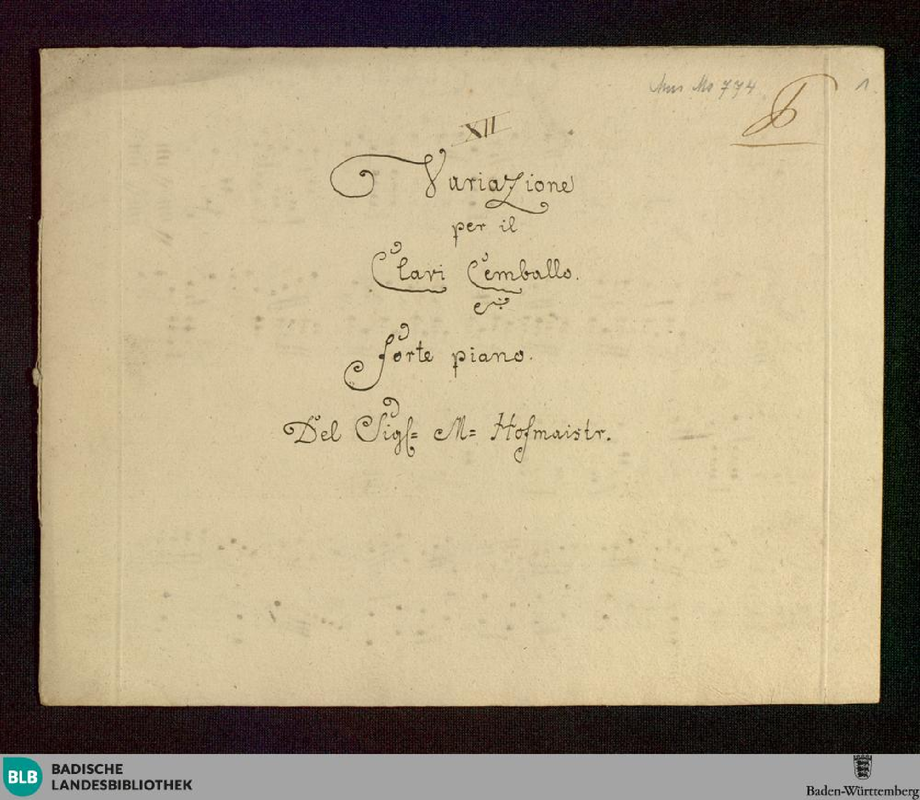 Mus Ms 774
1
XII
Variazione
per il
Clavi Cemballo.
e
forte piano.
Del Sigl= M= Hofmaistr.
BLB BADISCHE
LANDESBIBLIOTHEK
Baden-Württemberg